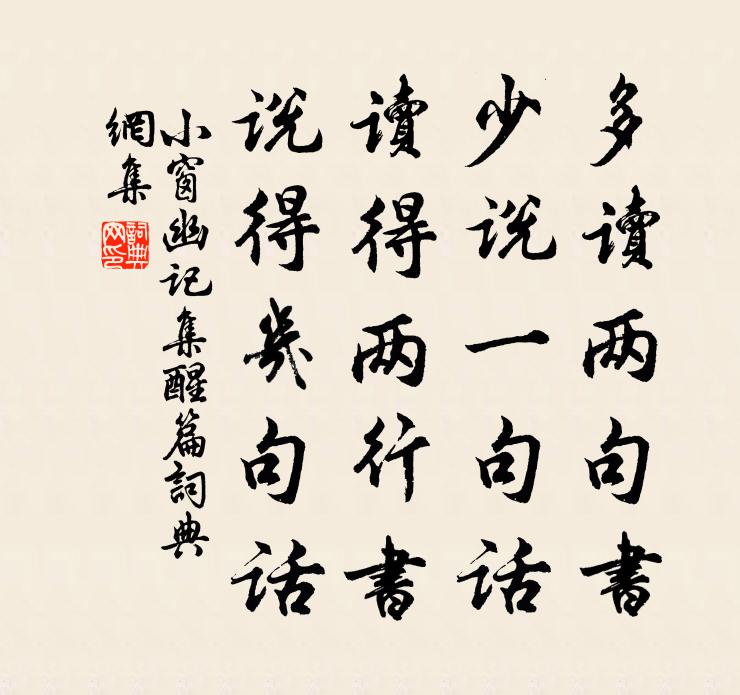 多讀两句書
少说一句话
讀得两行書
说得幾句话
小窗幽记集醒篇詞典
網集
詞典
网印